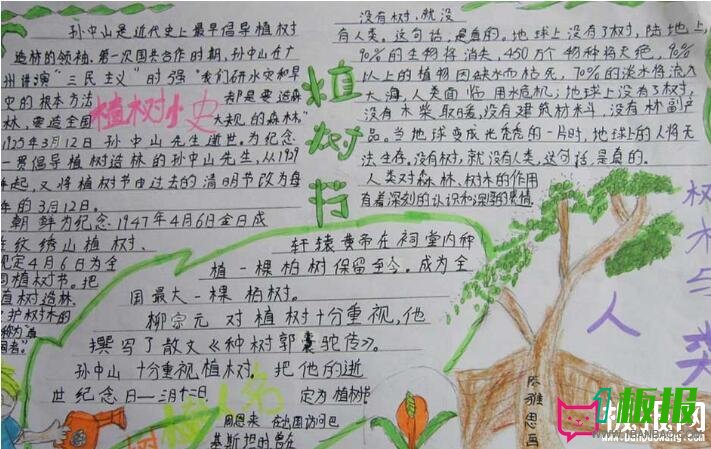 孙中山是近代史上最早倡导植树
造林的领袖。第一次国共合作时期,孙中山在广
州讲演"三民主义"时强"我们研水灾和旱
灾的根本方法 都是要造森
林,要造全国 大规的森林."
植树小史
1925年3月12日孙中山先生逝世。为纪念
一贯倡导植树造林的孙中山先生,从1929
年起,又将植树节由过去的清明节改为每
年的3月12日。
朝鲜为纪念1947年4月6日金日成
在纹绣山植树、
规定4月6日为全
国植树节。把
植树造林
护树木的
称为
国者"
植树行
没有树,就没
有人类。这句话,是真的。地球上没有了树,陆地上
90%的生物将消失,450万个物种将灭绝,90%
以上的植物因缺水而枯死,70%的淡水将流入
大海,人类面临用水危机;地球上没有了树,
没有木柴取暖,没有建筑材料,没有林副产
品。当地球变成光秃秃的一片时,地球上的人将无
法生存。没有树,就没有人类,这句话,是真的。
人类对森林、树木的作用
有着深刻的认识和深厚的感情
树木与人类
轩辕黄帝在祠堂内种
植一棵柏树保留至今。成为全
国最大一棵柏树。
柳宗元对植树十分重视,他
撰写了散文《种树郭橐驼传》。
孙中山十分重视植树。把他的逝
世纪念日—三月十二日. 定为植树节
周恩来在出国访问巴
基斯坦时曾在
陈雅思画
1板报
板报网